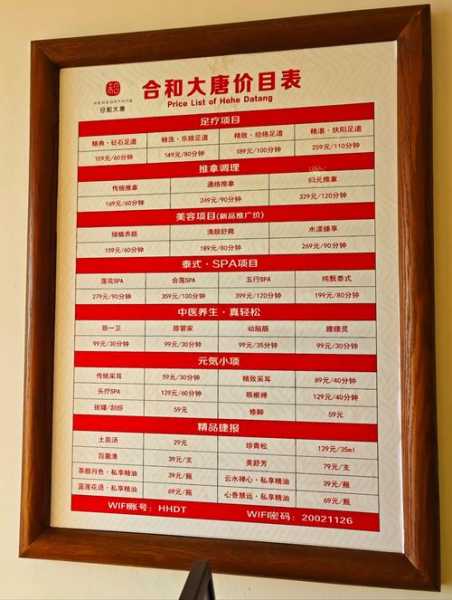 合和大唐价目表
Price List of Hehe Datang
合和大唐
足疗项目
精典·砭石足道 精洗·乐颜足道 精致·经络足道 精湛·扶阳足道
159元/60分钟 149元/80分钟 189元/100分钟 259元/110分钟
推拿调理
传统推拿 通络推拿 归元推拿
169元/60分钟 249元/90分钟 329元/120分钟
美容项目(新品推广价)
清颜舒震 水漾臻享
159元/60分钟 189元/80分钟 269元/90分钟
泰式·SPA项目
莲花SPA 合莲SPA 五行SPA 纯飘泰式
279元/90分钟 359元/100分钟 399元/120分钟 199元/80分钟
中医养生·真轻松
颈一卫 腰管家 动脑筋
99元/30分钟 99元/30分钟 99元/35分钟 99元/30分钟
元気小项
传统采耳 59元/30分钟 精致采耳 89元/40分钟
头疗SPA 129元/60分钟 129元/40分钟
拔罐/刮痧 59元 修脚 59元
精品捷报
29元 珍青松 129元/35ml
39元/支 美舒芳 79元/支
私享精油 39元/瓶 云水禅心·私享精油 39元/瓶
私享精油 69元/瓶 私享精油 69元/瓶
WIFI账号：HHDT WIFI密码：20021126